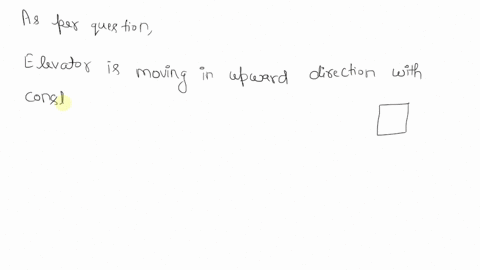 As per question,
Elevator is moving in upward direction with
const